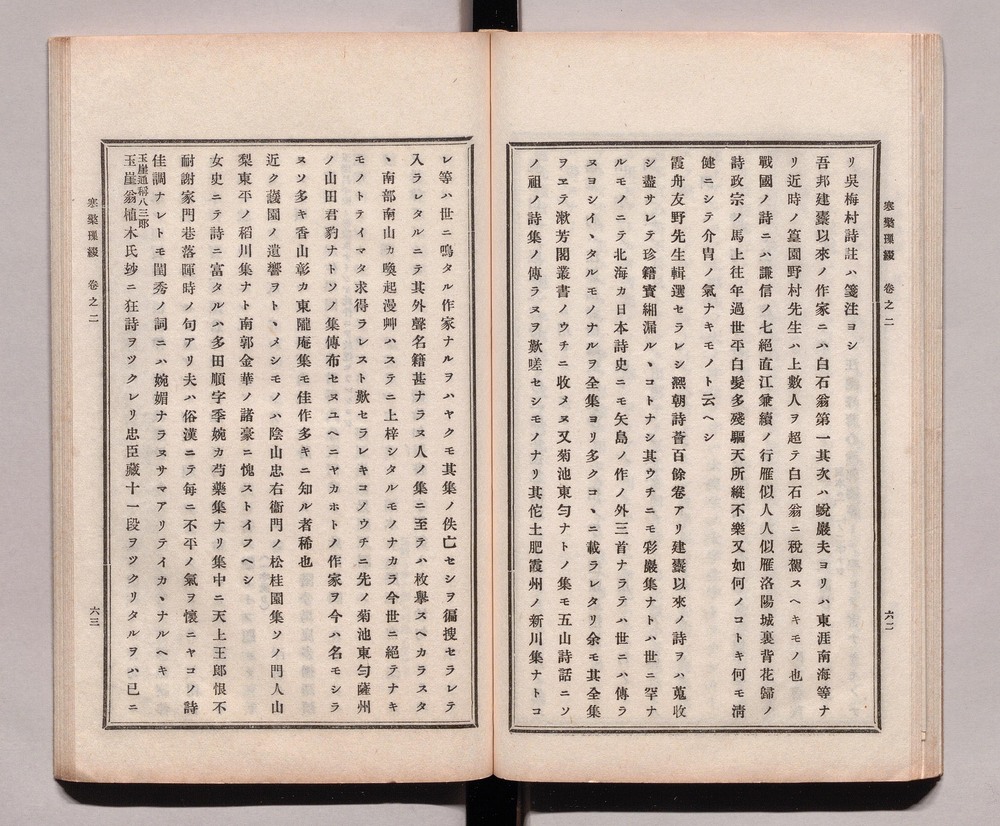 寒檠璅綴　卷之二
六二
リ吳梅村詩註ハ箋注ヨシ
吾邦建櫜以來ノ作家ニハ白石翁第一其次ハ蛻巖夫ヨリハ東涯南海等ナ
リ近時ノ篁園野村先生ハ上數人ヲ超テ白石翁ニ稅駕スヘキモノ也
戰國ノ詩ニハ謙信ノ七絕直江兼續ノ行雁似人人似雁洛陽城裏背花歸ノ
詩政宗ノ馬上往年過世平白髮多殘驅天所縱不樂又如何ノコトキ何モ淸
健ニシテ介冑ノ氣ナキモノト云ヘシ
霞舟友野先生輯選セラレシ熈朝詩薈百餘卷アリ建櫜以來ノ詩ヲハ蒐收
シ盡サレテ珍籍寶細漏ルヽコトナシ其ウチニモ彩巖集ナトハ世ニ罕ナ
ルモノニテ北海カ日本詩史ニモ矢島ノ作ノ外三首ナラテハ世ニハ傳ラ
ヌヨシイヽタルモノナルヲ全集ヨリ多クコヽニ載ラレタリ余モ其全集
ヲヱテ漱芳閣叢書ノウチニ收メヌ又菊池東勻ナトノ集モ五山詩話ニソ
ノ祖ノ詩集ノ傳ラヌヲ歎嗟セシモノナリ其佗土肥霞州ノ新川集ナトコ
レ等ハ世ニ鳴タル作家ナルヲハヤクモ其集ノ佚亡セシヲ徧搜セラレテ
入ラレタルニテ其外聲名籍甚ナラヌ人ノ集ニ至テハ枚擧スヘカラスタ
ヽ南部南山カ喚起漫艸ハステニ上梓シタルモノナカラ今世ニ絕テナキ
モノトテイマタ求得ラレスト歎セラレキコノウチニ先ノ菊池東勻薩州
ノ山田君豹ナトソノ集傳布セヌユヘニヤカホトノ作家ヲ今ハ名モシラ
ヌソ多キ香山彰カ東隴庵集モ佳作多キニ知ル者稀也
近ク護園ノ遺響ヲトヽメシモノハ陰山忠右衞門ノ松桂園集ソノ門人山
梨東平ノ稻川集ナト南郭金華ノ諸豪ニ愧ストイフヘシ
女史ニテ詩ニ富タルハ多田順字季婉カ芍藥集ナリ集中ニ天上王郎恨不
耐謝家門巷落暉時ノ句アリ夫ハ俗漢ニテ每ニ不平ノ氣ヲ懷ニヤコノ詩
佳調ナレトモ閨秀ノ詞ニハ婉媚ナラヌサマアリテイカヽナルヘキ
玉崖通稱八三郎
玉崖翁植木氏玅ニ狂詩ヲツクレリ忠臣藏十一段ヲツクリタルヲハ已ニ
寒檠璅綴　卷之二
六三